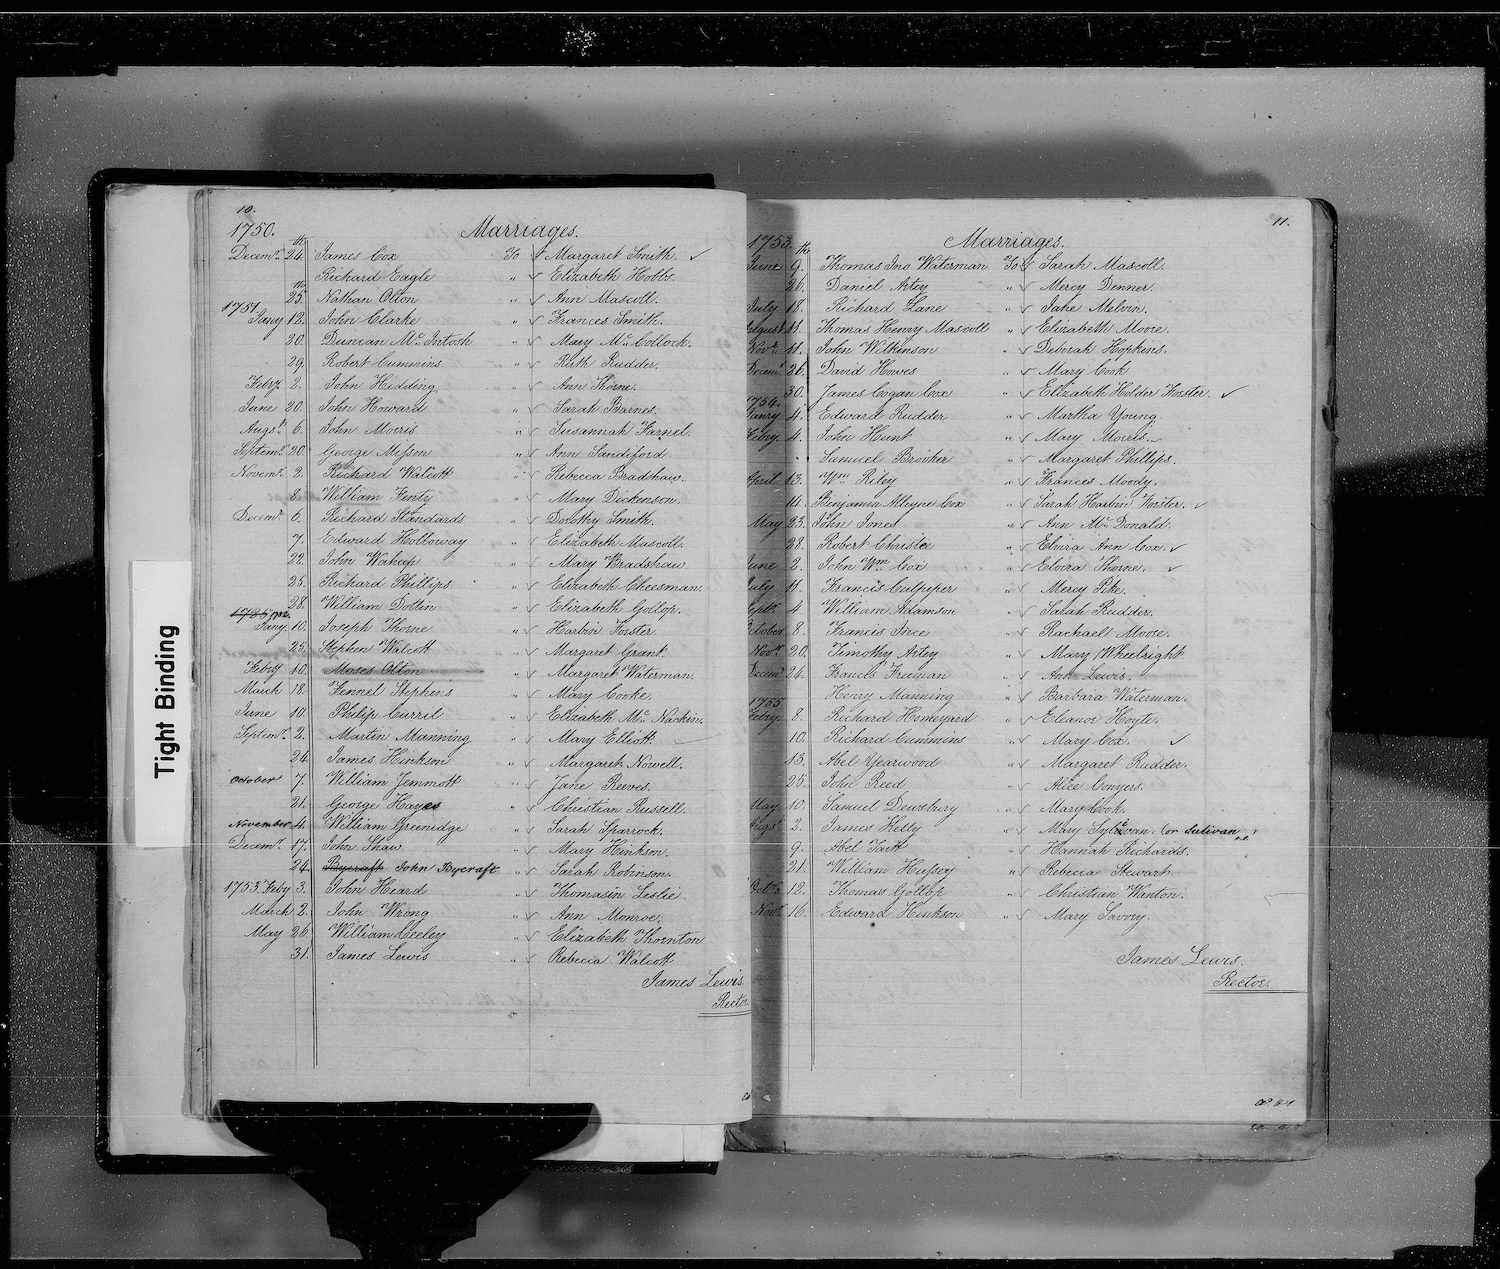 10.
1750. Marriages.
Decemr. 24th James Cox To Margaret Smith.
Richard Eagle " Elizabeth Hobbs.
25th Nathan Olton " Ann Mascoll.
1751
Jany. 12. John Clarke " Frances Smith.
20. Duncan Mc. Intosh " Mary Mc. Collock.
29. Robert Cummins " Ruth Rudder.
Febry. 2. John Hidding " Ann Thorne.
June 20. John Howard " Sarah Barnes.
Augst. 6. John Morris " Susannah Farnel.
Septemr. 20. George Misson " Ann Sandiford
Novemr. 2. Richard Walcott " Rebecca Bradshaw.
8. William Fenty " Mary Dickenson.
Decemr. 6. Richard Standards " Dorothy Smith.
7. Edward Holloway " Elizabeth Mascoll.
22. John Wakap " Mary Bradshaw
25. Richard Phillips " Elizabeth Cheesman.
28. William Dottin " Elizabeth Gollop.
Jany. 10. Joseph Thorne " Harbin Forster.
23. Stephen Walcott " Margaret Grant.
Febry 10. Moses Olton " Margaret Waterman.
March 18. Fennel Stephens " Mary Cooke.
June 10. Philip Curril " Elizabeth Mc. Nackin.
Septemr. 2. Martin Manning " Mary Elliott.
24. James Hinkson " Margaret Nowell.
October 7. William Jemmott " Jane Reeves.
21. George Hayes " Christian Russell.
November 4. William Greenidge " Sarah Sparrock.
Decemr. 17. John Shaw " Mary Hinkson.
24. Bycraft John Bycraft " Sarah Robinson.
1753 Feby 3. John Heard " Thomasin Leslie.
March 2. John Wrong " Ann Monroe.
May 26 William Ceeley " Elizabeth Thornton
31. James Lewis " Rebecca Walcott
James Lewis
Rector
Tight Binding
11.
1753. Marriages.
June 9th. Thomas Jno. Waterman To Sarah Mascoll.
26. Daniel Artey " Mercy Denner.
July 18. Richard Lane " Jane Melvin.
August 11. Thomas Henry Mascoll " Elizabeth Moore.
Novr. 11. John Wilkinson " Deborah Hopkins.
Decemr. 26. David Howes " Mary Cook
30. James Cogan Cox " Elizabeth Holder Forster.
1754.
Janry 4. Edward Rudder " Martha Young
Febry. 4. John Hunt " Mary Morris
Samuel Brooker " Margaret Phillips.
April 13. Wm. Riley " Frances Moody.
14. Benjamin Alleyne Cox " Sarah Harbin Forster.
May 23. John Jones " Ann Mc. Donald.
28. Robert Christie " Elvira Ann Cox.
June 2. John Wm. Cox " Elvira Thorne.
July 11. Francis Culpeper " Mercy Pike.
Septr. 4 William Adamson " Sarah Rudder.
October 8. Francis Ince " Rachael Moore.
Novr. 20. Timothy Artey " Mary Wheelright
Decemr 26. Francis Freeman " Ann Lewis.
Henry Manning " Barbara Waterman.
1755
Febry. 8. Richard Homeyard " Eleanor Hoyte.
10. Richard Cummins " Mary Cox.
13. Abel Yearwood " Margaret Rudder.
25. John Reed " Alice Conyers.
May 10. Samuel Dewsbury " Mary Cook
Augst. 2. James Kelly " Mary Sylivan. (or Sulivan
9. Abel Toitt " Hannah Richards.
21. William Hussey " Rebecca Stewart.
Octr. 12. Thomas Gollop " Christian Wanton.
Novr. 16. Edward Hinkson " Mary Savory.
James Lewis.
Rector.